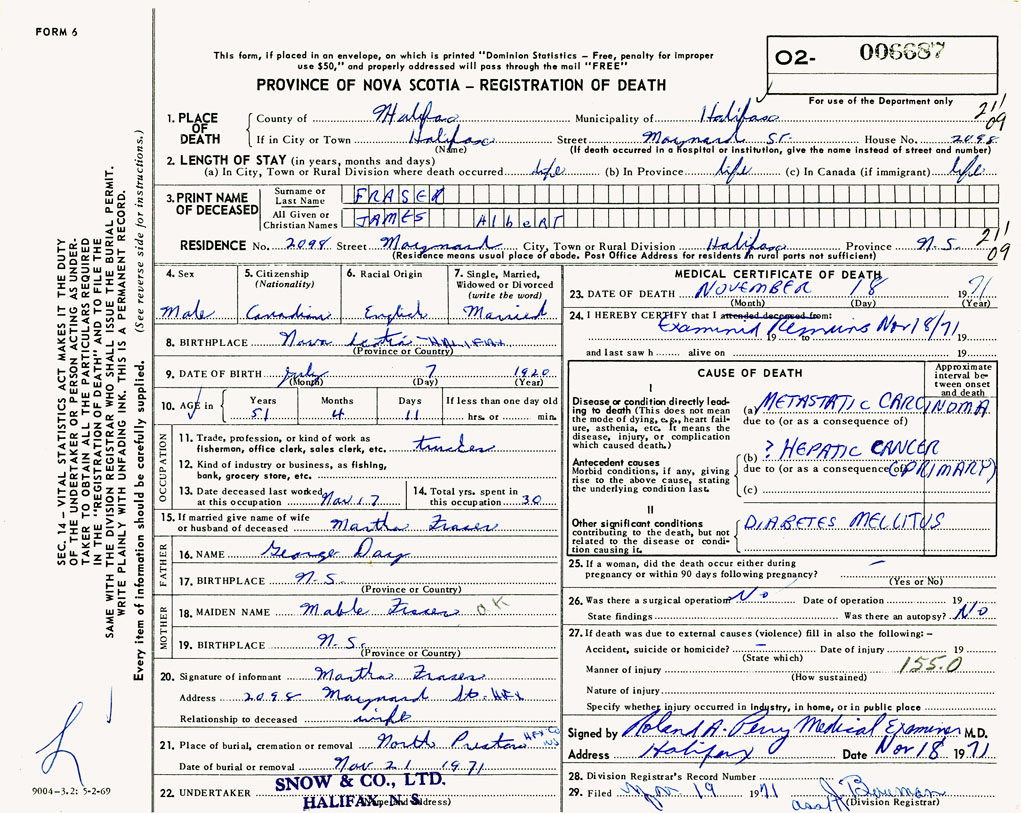 FORM 6
This form, if placed in an envelope, on which is printed "Dominion Statistics – Free, penalty for improper
use $50," and properly addressed will pass through the mail "FREE"
PROVINCE OF NOVA SCOTIA – REGISTRATION OF DEATH
O2- 006687
For use of the Department only
1. PLACE OF DEATH County of Halifax Municipality of Halifax 211
09
If in City or Town Halifax Street Maynard St. House No. 2098
(Name) (If death occurred in a hospital or institution, give the name instead of street and number)
2. LENGTH OF STAY (in years, months and days)
(a) In City, Town or Rural Division where death occurred life (b) In Province life (c) In Canada (if immigrant) life
3. PRINT NAME OF DECEASED Surname or Last Name FRASER
All Given or Christian Names JAMES AlbeRT
RESIDENCE No. 2098 Street Maynard City, Town or Rural Division Halifax Province N.S. 211
09
(Residence means usual place of abode. Post Office Address for residents in rural parts not sufficient)
4. Sex 5. Citizenship (Nationality) 6. Racial Origin 7. Single, Married, Widowed or Divorced (write the word)
Male Canadian English Married
8. BIRTHPLACE Nova Scotia - HALIFAX
(Province or Country)
9. DATE OF BIRTH July 7 1920
(Month) (Day) (Year)
10. AGE in Years Months Days If less than one day old
51 4 11 hrs. or min.
OCCUPATION
11. Trade, profession, or kind of work as
fisherman, office clerk, sales clerk, etc.
12. Kind of industry or business, as fishing,
bank, grocery store, etc.
13. Date deceased last worked at this occupation Nov 17 14. Total yrs. spent in this occupation 30
15. If married give name of wife or husband of deceased Martha Fraser
FATHER
16. NAME George Day
17. BIRTHPLACE N.S.
(Province or Country)
MOTHER
18. MAIDEN NAME Mable Fraser OK
19. BIRTHPLACE N.S.
(Province or Country)
20. Signature of informant Martha Fraser
Address 2098 Maynard St. HFX
Relationship to deceased wife
21. Place of burial, cremation or removal North Preston HFX Co NS
Date of burial or removal Nov 21 1971
22. UNDERTAKER SNOW & CO., LTD.
HALIFAX, N.S.
(Name and address)
MEDICAL CERTIFICATE OF DEATH
23. DATE OF DEATH NOVEMBER 18 1971
(Month) (Day) (Year)
24. I HEREBY CERTIFY that I attended deceased from:
Examined Remains Nov 18/71
19 to 19
and last saw h alive on 19
CAUSE OF DEATH
Approximate interval between onset and death
I
Disease or condition directly leading to death (This does not mean the mode of dying, e.g., heart failure, asthenia, etc. It means the disease, injury, or complication which caused death.)
(a) METASTATIC CARCINOMA
due to (or as a consequence of)
Antecedent causes
Morbid conditions, if any, giving rise to the above cause, stating the underlying condition last.
(b) ? HEPATIC CANCER
due to (or as a consequence of) (PRIMARY)
(c)
II
Other significant conditions contributing to the death, but not related to the disease or condition causing it.
DIABETES MELLITUS
25. If a woman, did the death occur either during
pregnancy or within 90 days following pregnancy? –
(Yes or No)
26. Was there a surgical operation No Date of operation 19
State findings Was there an autopsy? No
27. If death was due to external causes (violence) fill in also the following: –
Accident, suicide or homicide? – Date of injury 19
(State which)
Manner of injury 155.0
(How sustained)
Nature of injury
Specify whether injury occurred in Industry, in home, or in public place
Signed by Roland A. Perry Medical Examiner M.D.
Address Halifax Date Nov 18 1971
28. Division Registrar's Record Number
29. Filed Nov 19 1971 J. Bowman
asst (Division Registrar)
SEC. 14 – VITAL STATISTICS ACT MAKES IT THE DUTY
OF THE UNDERTAKER OR PERSON ACTING AS UNDER-
TAKER TO OBTAIN ALL THE PARTICULARS REQUIRED
IN THE "REGISTRATION OF DEATH" AND TO FILE THE
SAME WITH THE DIVISION REGISTRAR WHO SHALL ISSUE THE BURIAL PERMIT.
WRITE PLAINLY WITH UNFADING INK. THIS IS A PERMANENT RECORD.
Every item of information should be carefully supplied. (See reverse side for instructions.)
9004-3.2: 5-2-69